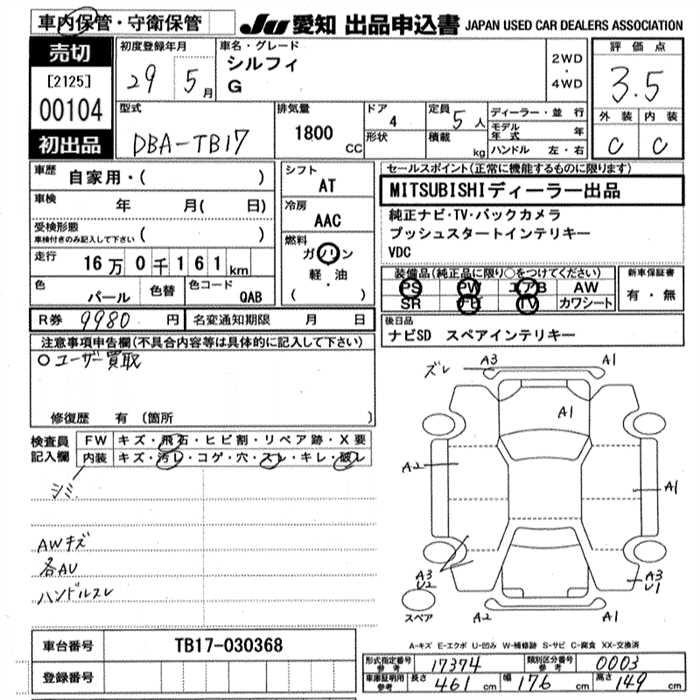 車内保管・守衛保管
JU 愛知 出品申込書 JAPAN USED CAR DEALERS ASSOCIATION
売切
[2125]
00104
初出品
初度登録年月
29 5月
車名・グレード
シルフィ
G
2WD
・
4WD
評価点
3.5
外装 内装
C C
型式
DBA-TB17
排気量
1800 CC
ドア
4
形状
定員 5人
積載 kg
ディーラー・並行
モデル年 年
ハンドル 左・右
車歴
自家用・( )
車検
年 月( 日)
受検形態
車検付きのみ記入して下さい ( )
走行
16万0千161km
色
パール
色替
色コード
QAB
シフト
AT
冷房
AAC
燃料
ガソリン
軽・油
( )
セールスポイント(正常に機能するものに限ります)
MITSUBISHIディーラー出品
純正ナビ・TV・バックカメラ
プッシュスタートインテリキー
VDC
装備品(純正品に限り○をつけてください)
PS PW エアB AW
SR TV カワシート
新車保証書
有・無
R券 9980 円 名変通知期限 月 日
後日品
ナビSD スペアインテリキー
注意事項申告欄(不具合内容等は具体的に記入して下さい)
○ユーザー買取
修復歴 有 (箇所 )
検査員
記入欄
FW キズ・飛石・ヒビ割・リペア跡・X要
内装 キズ・汚レ・コゲ・穴・スレ・キレ・破レ
シミ
AWキズ
各AU
ハンドルスレ
ズレ A3 A1
A1
A2 A1
A3
U2
A3
U1
スペア A2 A2
A-キズ E-エクボ U-凹み W-補修跡 S-サビ C-腐食 XX-交換済
車台番号 TB17-030368
登録番号
形式指定番号
参考 17374
類別区分番号
参考 0003
車庫証明用
参考
長さ 461 cm 幅 176 cm 高さ 149 cm